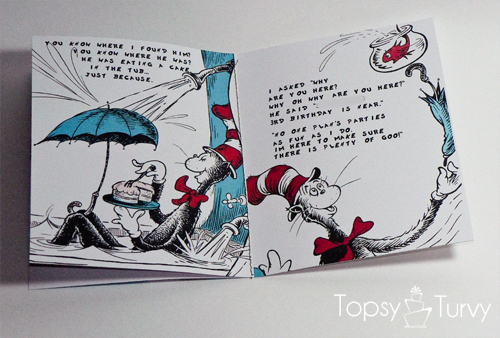 YOU KNOW WHERE I FOUND HIM?
YOU KNOW WHERE HE WAS?
HE WAS EATING A CAKE
IN THE TUB...
JUST BECAUSE.
I ASKED "WHY
ARE YOU HERE?
WHY OH WHY ARE YOU HERE?"
HE SAID "
3RD BIRTHDAY IS NEAR."
"NO ONE PLAN'S PARTIES
AS FUN AS I DO.
I'M HERE TO MAKE SURE
THERE IS PLENTY OF GOO!"
Topsy Turvy